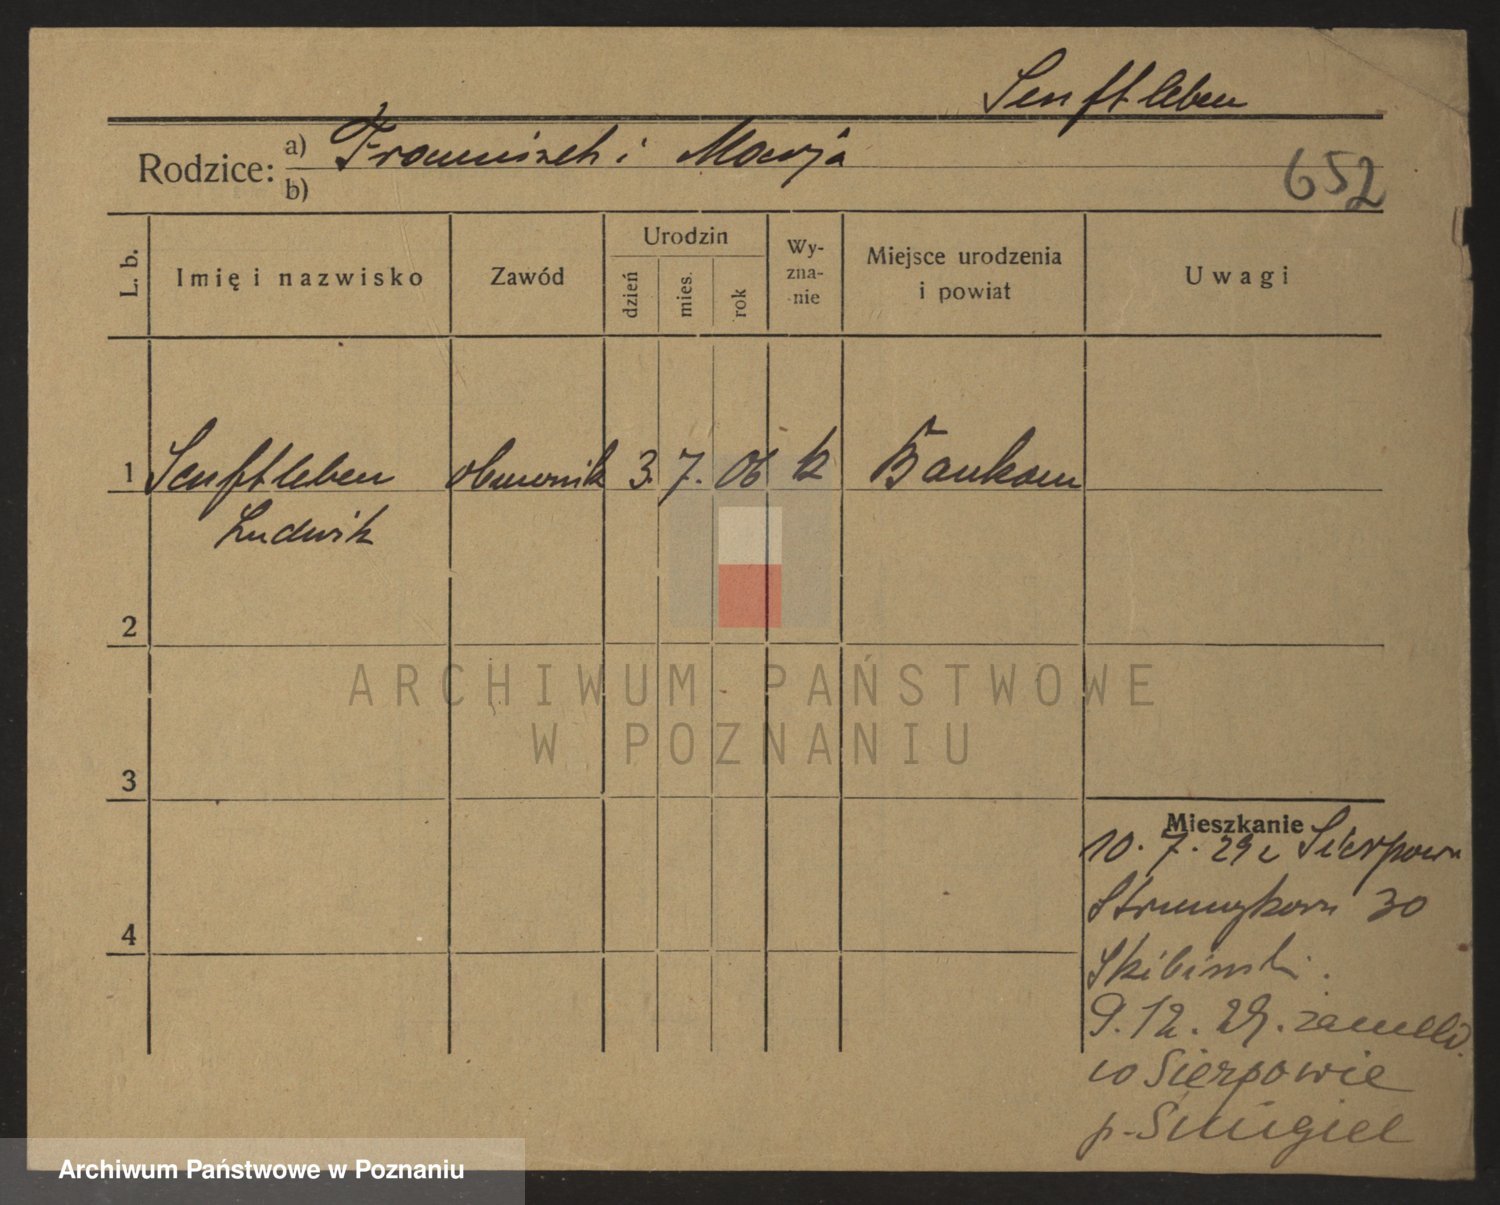 Senftleben
Rodzice: a) Franciszek i Marja
b)
652
L. b.
Imię i nazwisko
Zawód
Urodzin
dzień
mies.
rok
Wy-
zna-
nie
Miejsce urodzenia
i powiat
Uwagi
1 Senftleben 3. 7. 06 k
Ludwik
2
3
4
Mieszkanie
10. 7. 29 z
30
Skibiński.
9. 12. 29. zameld.
w Sierpowie
p-Śmigiel
ARCHIWUM PAŃSTWOWE
W POZNANIU
Archiwum Państwowe w Poznaniu